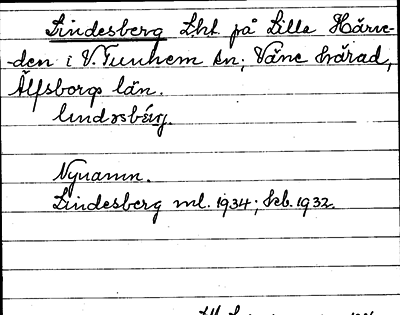 Lindesberg Lht. på Lilla Härve-
-den i V. Tunhem sn; Väne härad,
Älfsborgs län.
lindəsbérg.
Nynamn.
Lindesberg ml. 1934; kb. 1932